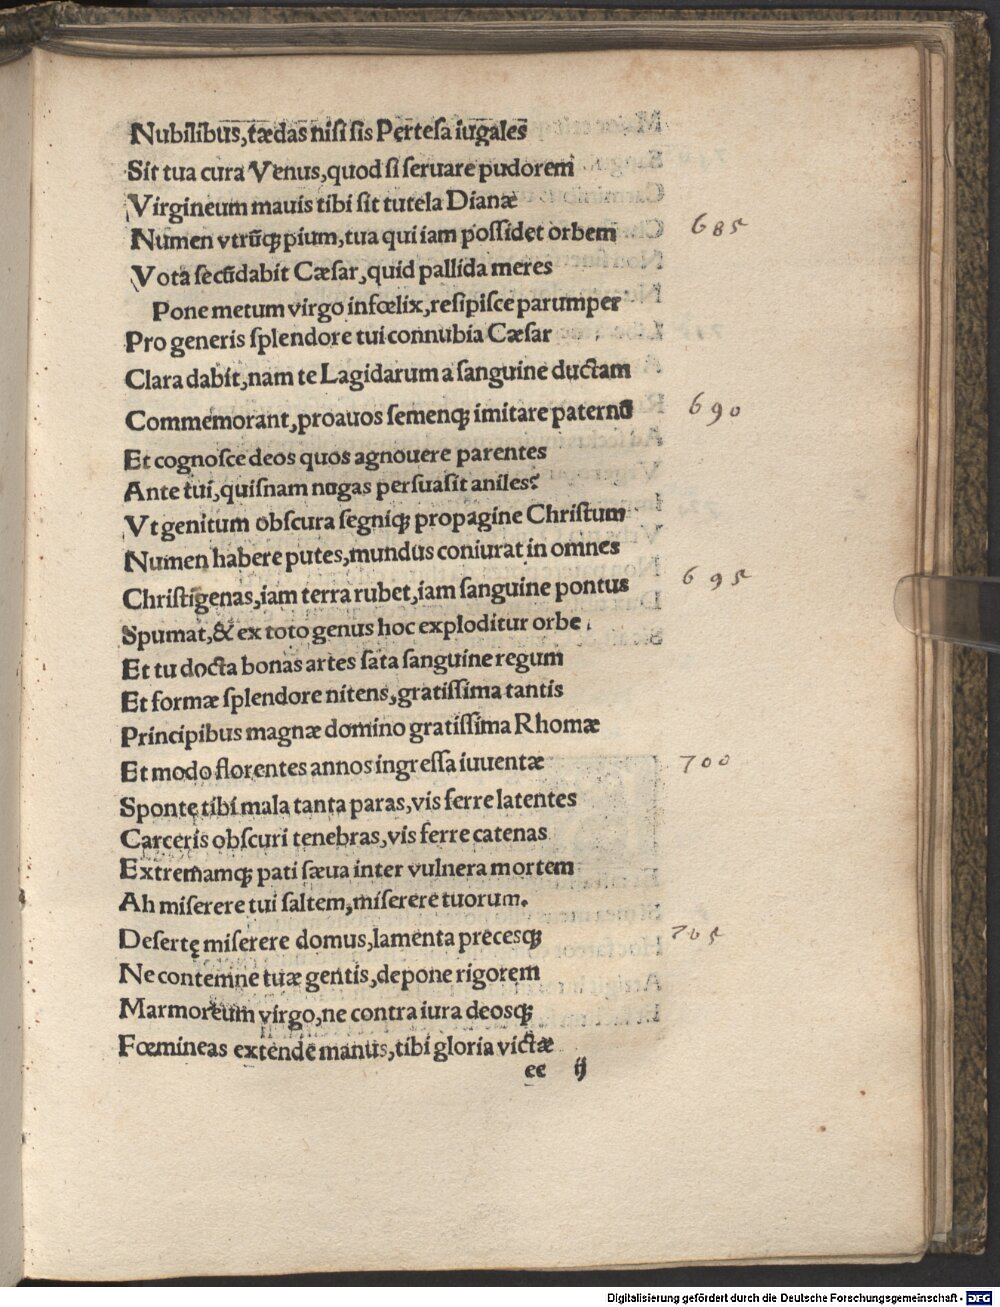 Nubilibus,tædas nisi sis Pertesa iugales
Sit tua cura Venus,quod si seruare pudorem
Virgineum mauis tibi sit tutela Dianæ
Numen vtrũqꝫ pium,tua qui iam possidet orbem 685
Vota secũdabit Cæsar,quid pallida meres
Pone metum virgo infœlix,resipisce parumper
Pro generis splendore tui connubia Cæsar
Clara dabit,nam te Lagidarum a sanguine ductam
Commemorant,proauos semenqꝫ imitare paternũ 690
Et cognosce deos quos agnouere parentes
Ante tui,quisnam nugas persuasit aniles?
Vt genitum obscura segniqꝫ propagine Christum
Numen habere putes,mundus coniurat in omnes
Christigenas,iam terra rubet,iam sanguine pontus 695
Spumat,& ex toto genus hoc exploditur orbe.
Et tu docta bonas artes sata sanguine regum
Et formæ splendore nitens,gratissima tantis
Principibus magnæ domino gratissima Rhomæ
Et modo florentes annos ingressa iuuentæ 700
Sponte tibi mala tanta paras,vis ferre latentes
Carceris obscuri tenebras,vis ferre catenas
Extremamqꝫ pati sæua inter vulnera mortem
Ah miserere tui saltem,miserere tuorum.
Desertę miserere domus,lamenta precesqꝫ 705
Ne contemne tuæ gentis,depone rigorem
Marmoreum virgo,ne contra iura deosqꝫ
Fœmineas extende manus,tibi gloria victæ
ee ij
Digitalisierung gefördert durch die Deutsche Forschungsgemeinschaft - DFG